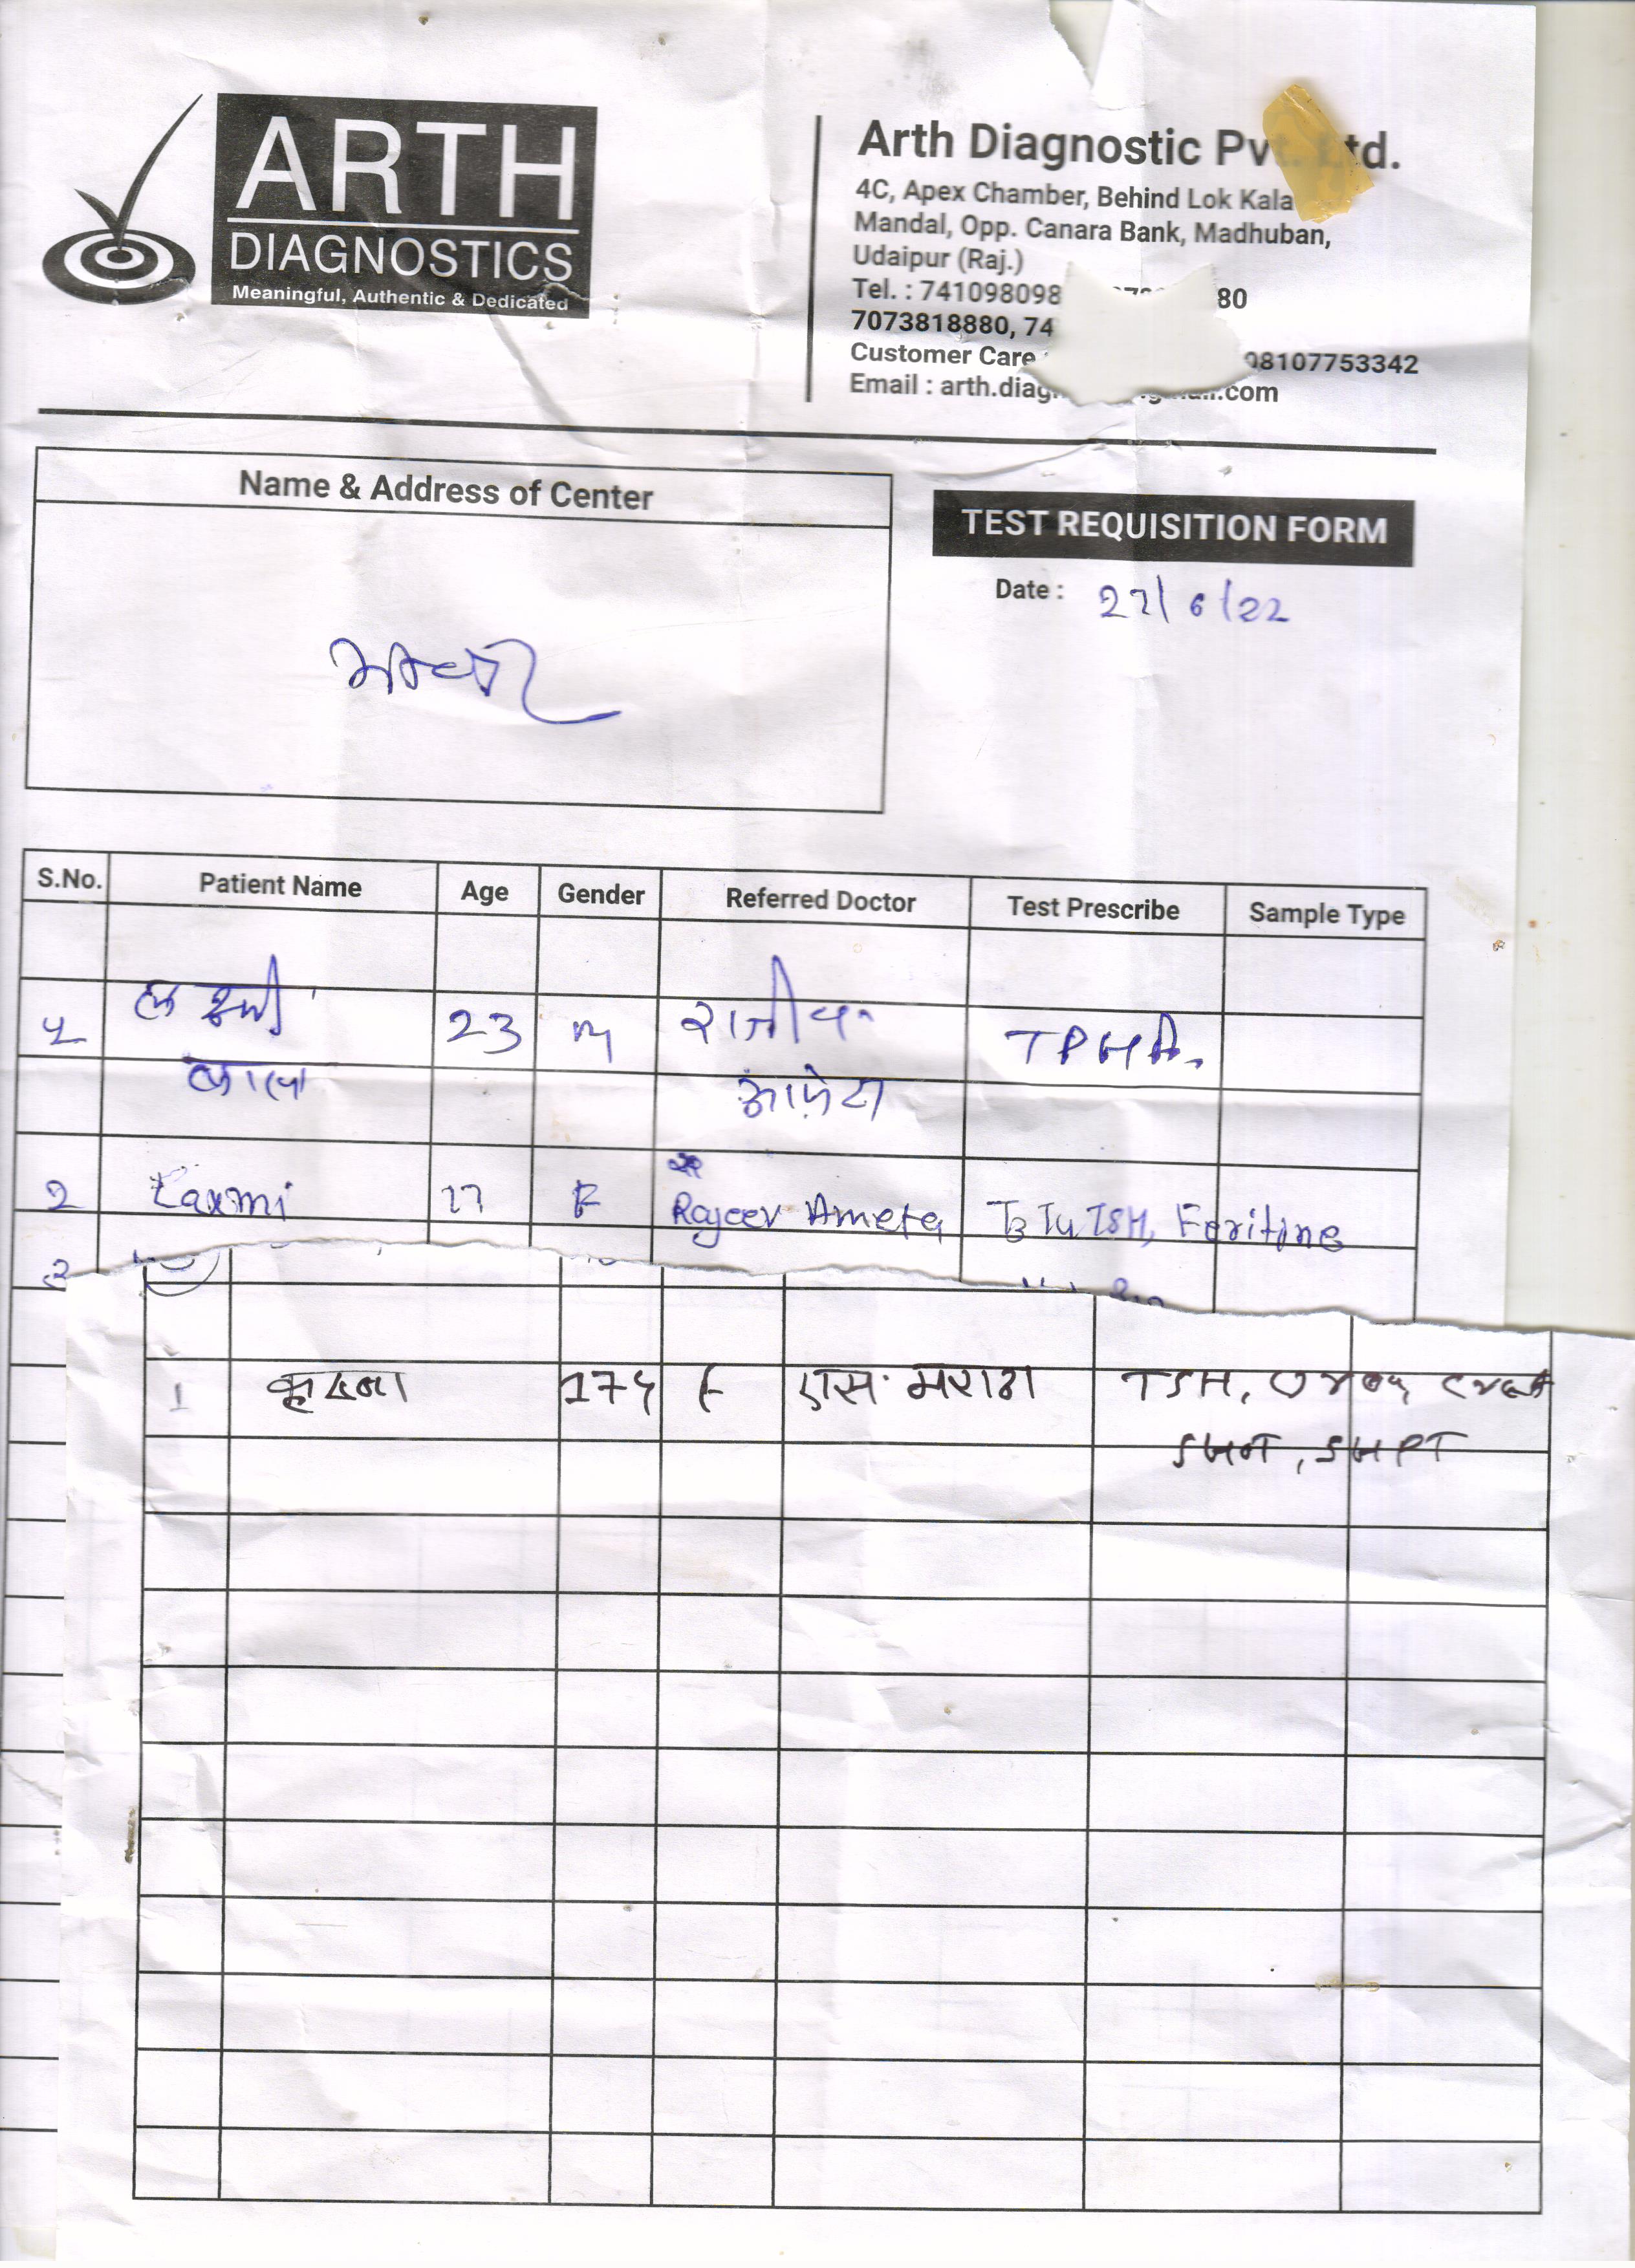 ARTH
DIAGNOSTICS
Meaningful, Authentic & Dedicated
Arth Diagnostic Pvt. Ltd.
4C, Apex Chamber, Behind Lok Kala
Mandal, Opp. Canara Bank, Madhuban,
Udaipur (Raj.)
Tel. : 741098098 80
7073818880, 74
Customer Care 08107753342
Email : arth.diag .com
Name & Address of Center
TEST REQUISITION FORM
Date : 27/6/22
S.No. Patient Name Age Gender Referred Doctor Test Prescribe Sample Type
लक्ष्मी राजीव
23 M TPHA.
लाल आमेटा
2 Laxmi 17 F Rajeev Ameta T3 T4 TSH, Feritine
3
1 F एस. मराठा TSH, Urea,
SGOT, SGPT